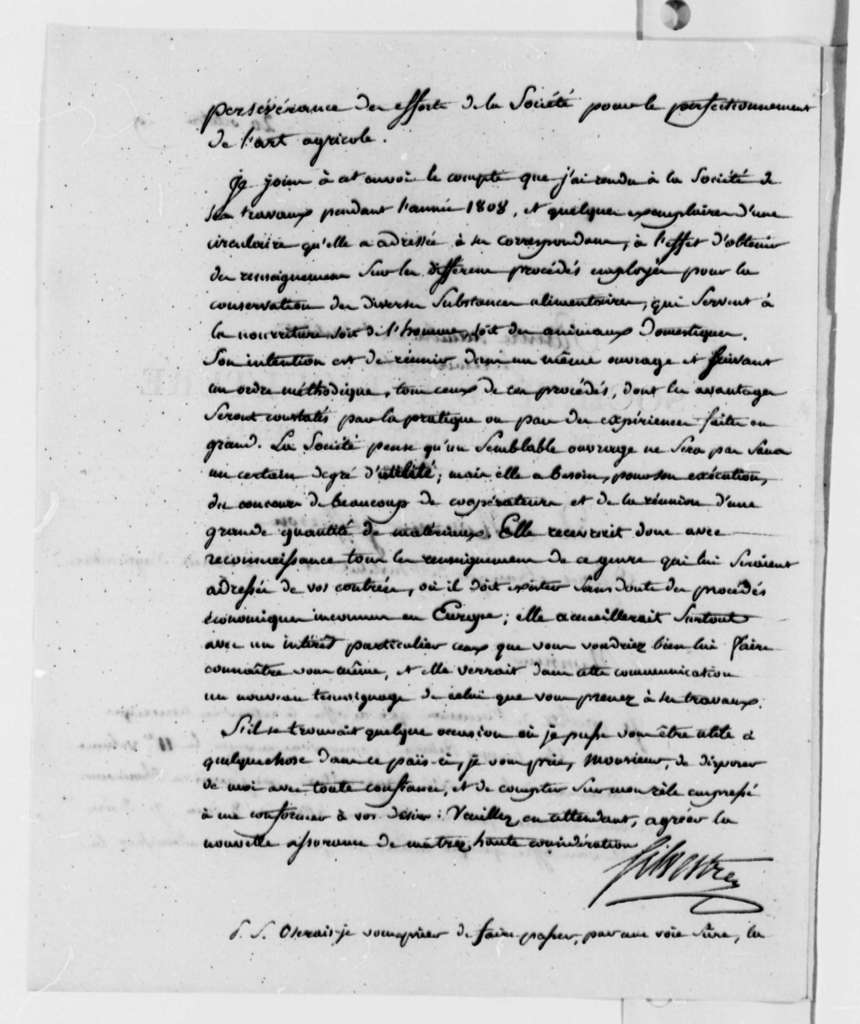 persévérance des efforts de la Société pour le perfectionnement
de l'art agricole.
Je joins à cet envoi le compte que j'ai rendu à la Société de
ses travaux pendant l'année 1808, et quelques exemplaires d'une
circulaire qu'elle a adressée à ses correspondans, à l'effet d'obtenir
des renseignemens sur les différens procédés employés pour la
conservation des diverses Substances alimentaires, qui servent à
la nourriture soit de l'homme, soit des animaux domestiques.
Son intention est de réunir dans un même ouvrage et suivant
un ordre méthodique, tous ceux de ces procédés, dont les avantages
seront constatés par la pratique ou par des expériences faites en
grand. La Société pense qu'un Semblable ouvrage ne sera pas sans
un certain degré d'utilité; mais elle a besoin, pour son exécution,
du concours de beaucoup de coopérateurs et de la réunion d'une
grande quantité de matériaux. Elle recevroit donc avec
reconnaissance tous les renseignemens de ce genre qui lui seraient
adressés de vos contrées, où il doit exister sans doute des procédés
économiques inconnus en Europe; elle accueillerait surtout
avec un intérêt particulier ceux que vous voudriez bien lui faire
connaître vous même, et elle verrait dans cette communication
un nouveau témoignage de celui que vous prenez à ses travaux.
S'il se trouvait quelque occasion où je pusse vous être utile à
quelque chose dans ce païs-ci, je vous prie, Monsieur, de disposer
de moi avec toute confiance, et de compter sur mon zèle empressé
à me conformer à vos désirs: Veuillez, en attendant, agréer la
nouvelle assurance de ma très haute considération
Silvestre
P. S. Oserais-je vous prier de faire passer, par une voie sûre, les